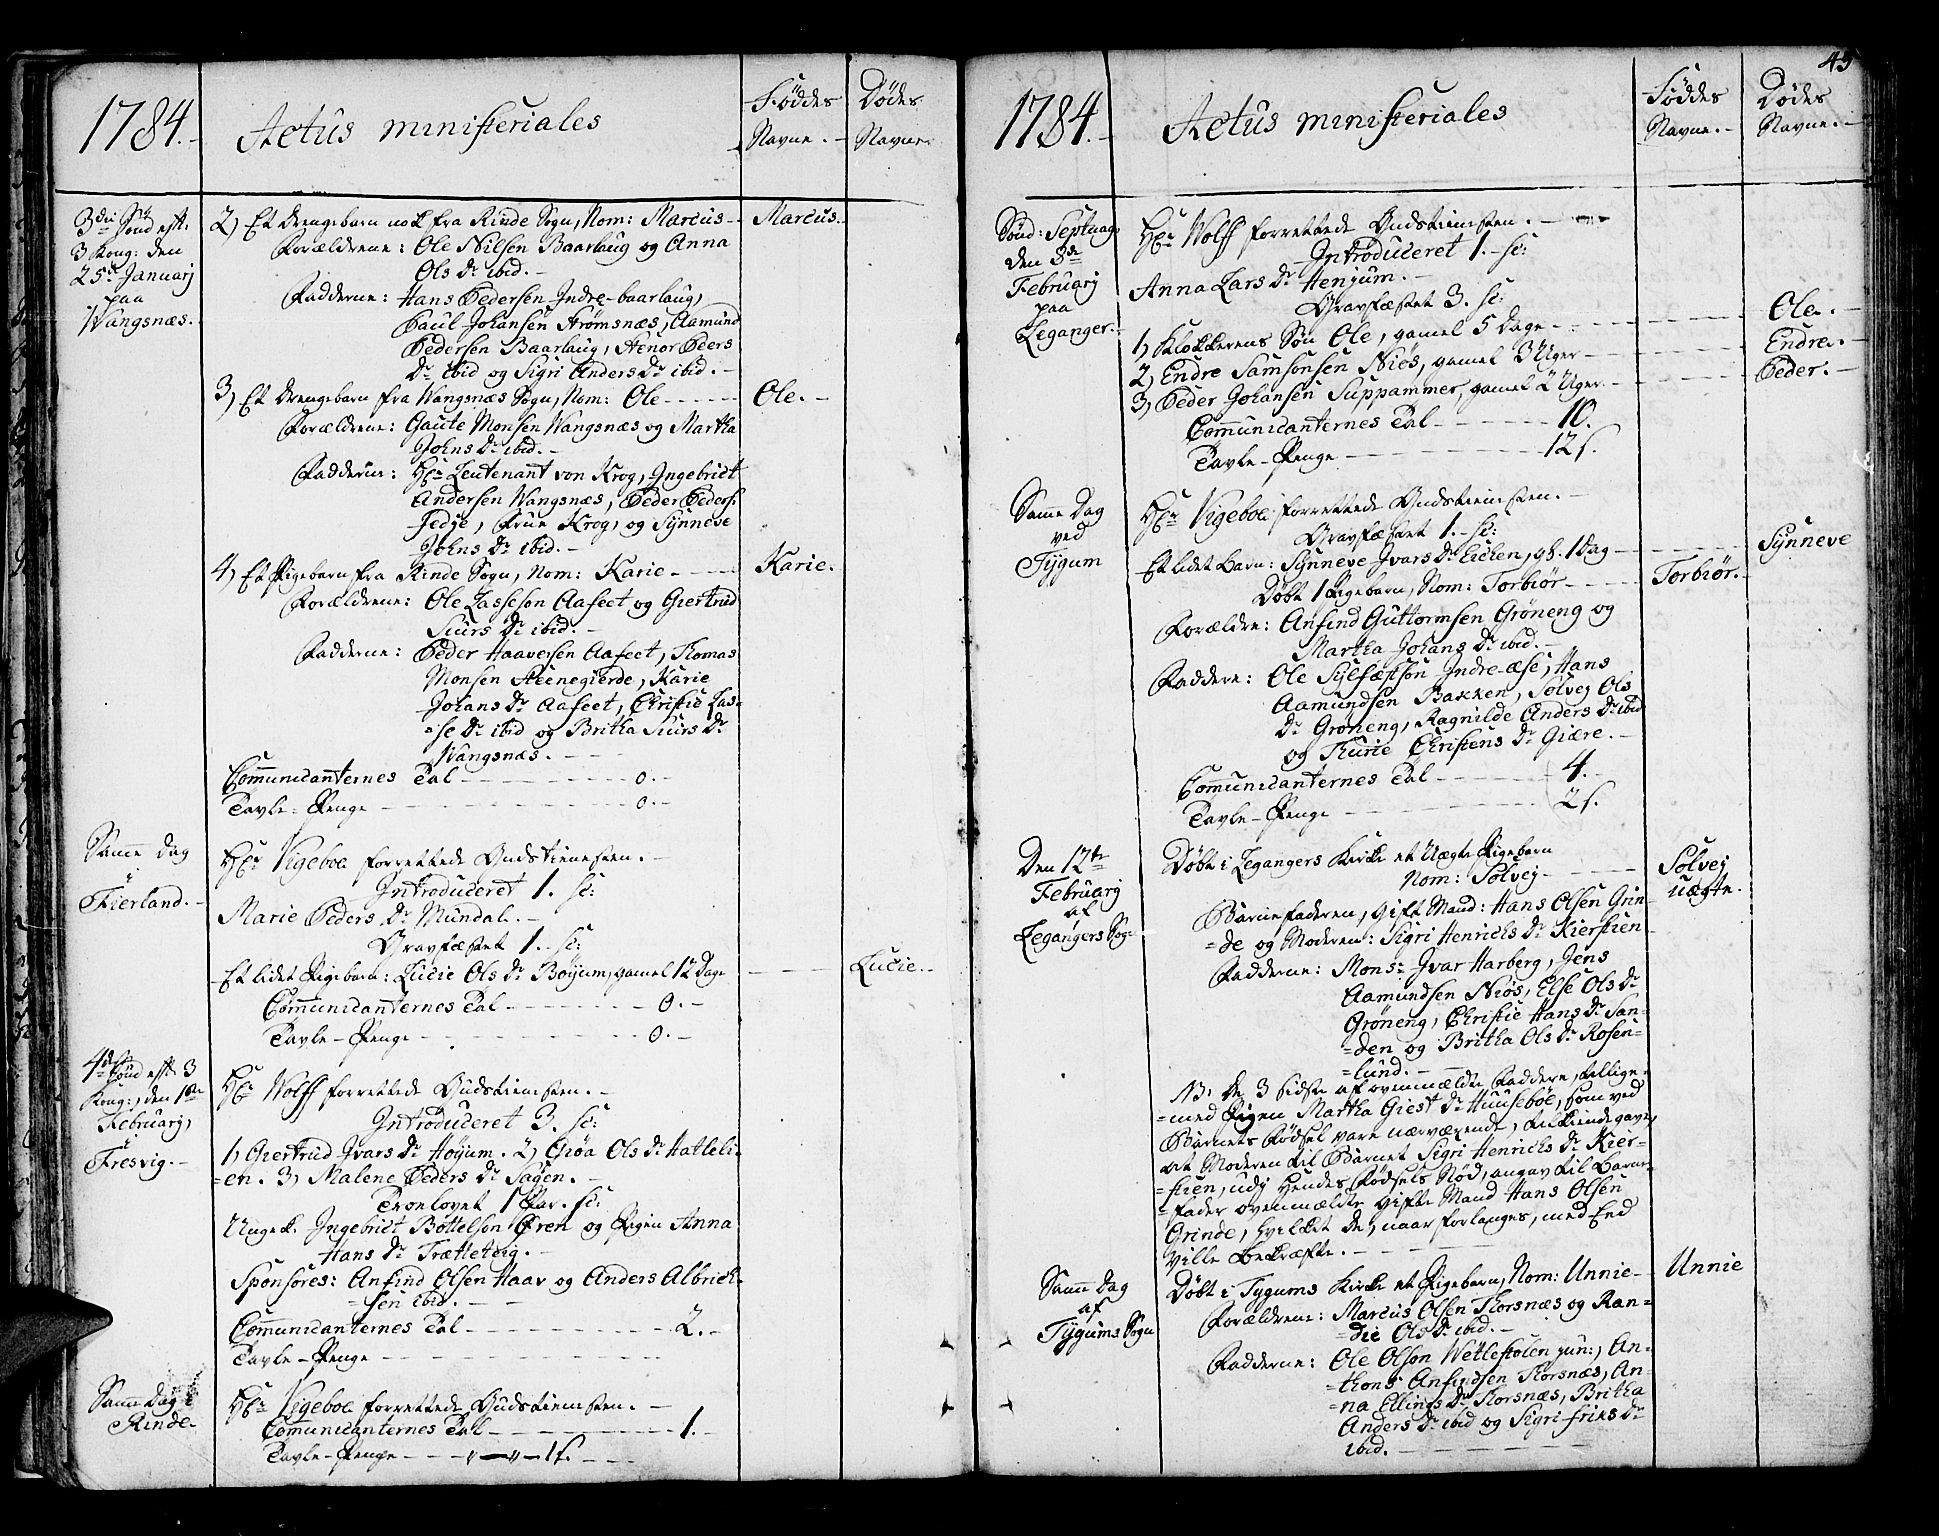 1784.-
Actus ministeriales
Føddes
Navne.-
Dødes
Navne.
3die Sønd eft:
3 Kong: den
25de Januarj
paa
Wangsnæs.-
2, Et drengebarn nok fra Rinde Sogn, Nom: Marcus-
Marcus.
Forældrene: Ole Nilsen Baarlaug og Anna
Ols Dr ibid.-
Fadderne: Hans Pedersen Indre-baarlaug,
Paul Johansen Strømsnæs, Aamund
Pedersen Baarlaug, Aenor Peers
Dr ibid og Sigri Anders Dr ibid.-
3, Et drengebarn fra Wangsnæs Sogn, Nom: Ole------
Ole.-
Forældrene: Gaute Monsen Wangsnæs og Martha
Johns Dr ibid.-
Fadderne: Hr Leutenant von Krog, Ingebrict
Andersen Wangsnæs, Peder Peders:
Fedje, Frue Krog, og Synneve
Johns Dr ibid.-
4, Et Pigebarn fra Rinde Sogn, Nom: Karie.----
Karie.
Forældrene: Ole Lasseson Aafeet og Giertrud
Siurs Dr ibid.-
Fadderne: Peder Haaversen Aafeet, Thomas
Monsen Steenegierde, Karie
Johans Dr Aafeet, Christie Las=
=se Dr ibid og Britha Siurs Dr
Wangsnæs.--
Communicanternes Tal--------0.-
Tavle=Penge--------0.-
Samme dag
i
Fierland.-
Hr Vigeboe forrettede Gudstienesten.-
Introduceret 1. sc:
Marie Peders Dr Mundal.-
Gravfæstet 1. sc:
Et lidet Pigebarn: Lucie Ols Dr Bøyum, gamel 12 Dage
Lucie.-
Communicanternes Tal-------0.-
Tavle-Penge--------0.-
4de Sønd eft: 3
Kong:, den 1ste
Februarj,
i
Fresvig.-
Hr Wolff forrettede Gudstienesten.-
Introduceret 3. sc:
1, Giertrud Ivars Dr Høyum. 2, Grøa Ols Dr Hatleli=
=en. 3, Malene Peders Dr Sagen.-
Trolovet 1 Par. sc:
Ungek. Ingebrict Bøttelson Øren og Pigen Anna
Hans Dr Trætteteig.-
Sponsores: Anfind Olsen Haav og Anders Albrich=
=sen ibid.--
Communicanternes Tal--------2.-
Tavle-Penge--------
Samme dag i
Rinde.
Hr Vigeboe forrettede Gudstienesten.-
Communicanternes Tal--------1.-
Tavle-Penge-------1 s.---
45
1784.-
Actus ministeriales
Føddes
Navne.-
Dødes
Navne.-
Sønd: Septuag:
den 8de
Februarj
paa
Leganger.-
Hr Wolff forrettede Gudstienesten.---
Introduceret 1.- sc:
Anna Lars Dr Henjum.-
Gravfæstet 3. sc:
1, Klokkerens Søn Ole, gamel 5 Dage------
Ole.-
2, Endre Samsonsen Niøs, gamel 3 Uger------
Endre.-
3, Peder Johansen Suppammer, gamel 2 Uger.-----
Peder.-
Communicanternes Tal------10.
Tavle-Penge--------12 s.
Samme Dag
ved
Tÿgum
Hr Vigeboe forrettede Gudstienesten.-
Gravfæstet 1.- sc:
Et lidet barn: Synneve Ivars Dr Eichen, gl. 1 Dag----
Sÿnneve
Døbt 1 Pigebarn, Nom: Torbiør----
Torbiør.-
Forældre: Anfind Guttormsen Grøneng og
Martha Johans Dr ibid.-
Faddere: Ole Sylfæstson Indre-æse, Hans
Aamundsen Bakken, Sølvej Ols
Dr Grøneng, Ragnilde Anders Dr ibid
og Thurie Christens Dr Giære.-
Communicanternes Tal------4.-
Tavle-Penge------2 s.
Den 12te
Februarj
af
Legangers Sog:
Døbt i Legangers Kirke et Uægte Pigebarn
Nom: Sølvej------
Sølvej
uægte.
Barnefaderen, gift Mand: Hans Olsen Grin=
=de og Moderen: Sigri Henrichs Dr Kierstien
Fadderne: Mons: Ivar Harberg, Jens
Aamundsen Niøs, Else Ols Dr
Grøneng, Christie Hans Dr San=
=den og Britha Ols Dr Rosen=
=lund.--
NB, de 3 sidste af ovenmældte Faddere, tillige=
=med Pigen Martha Giest Dr Huuseboe, som ved
Barnets Fødsel vare nærværende, tilkiendegave,
at Moderen til Barnet Sigri Henrichs Dr Kier=
=stien, udj hendes Fødsels Nød, angav til Barne=
=fader ovenmældte gifte Mand Hans Olsen
Grinde, hvilket de, naar forlanges, med Eed
ville bekræfte.---
Samme Dag
af
Tÿgums Sogn
Døbt i Tygums Kirke et Pigebarn, Nom: Unnie-
Unnie
Forældrene: Marcus Olsen Thorsnæs og Ran=
=die Ols Dr ibid.-
Fadderne: Ole Olson Wetlestølen jun:, An=
=thoni Anfindsen Thorsnæs, An=
=na Ellings Dr Thorsnæs, Britha
Anders Dr ibid og Sigri friks Dr
ibid.------